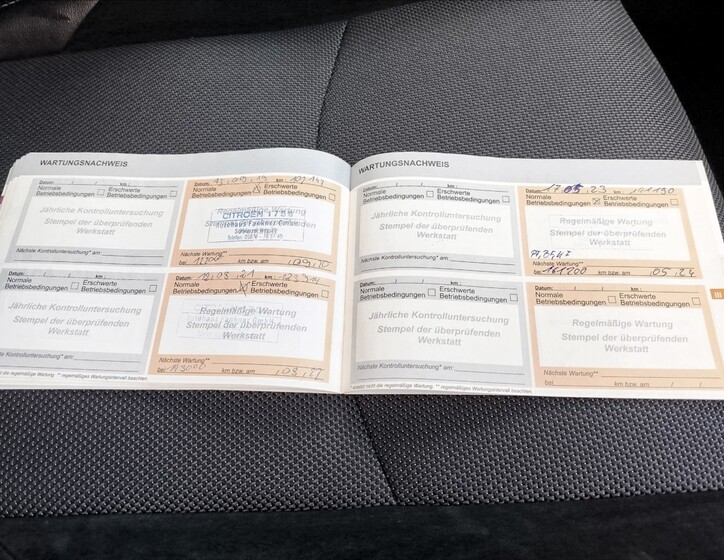 WARTUNGSNACHWEIS
Datum: / / km :
Normale Betriebsbedingungen Erschwerte Betriebsbedingungen
Jährliche Kontrolluntersuchung
Stempel der überprüfenden
Werkstatt
Nächste Kontrolluntersuchung am: / /
Datum: km :
Normale Betriebsbedingungen Erschwerte Betriebsbedingungen
Regelmäßige Wartung
CITROËN
Nächste Wartung**
bei km bzw. am
Datum: / / km :
Normale Betriebsbedingungen Erschwerte Betriebsbedingungen
Jährliche Kontrolluntersuchung
Stempel der überprüfenden
Werkstatt
Nächste Kontrolluntersuchung am: / /
Datum: 21 km :
Normale Betriebsbedingungen Erschwerte Betriebsbedingungen
Regelmäßige Wartung
Stempel der überprüfenden
Werkstatt
Nächste Wartung**
bei km bzw. am
die regelmäßige Wartung ** regelmäßiges Wartungsintervall beachten
WARTUNGSNACHWEIS
Datum: / / km :
Normale Betriebsbedingungen Erschwerte Betriebsbedingungen
Jährliche Kontrolluntersuchung
Stempel der überprüfenden
Werkstatt
Nächste Kontrolluntersuchung am: / /
Datum: 17 05 23 km :
Normale Betriebsbedingungen Erschwerte Betriebsbedingungen
Regelmäßige Wartung
Stempel der überprüfenden
Werkstatt
bei 161200 km bzw. am 05.24
Datum: / / km :
Normale Betriebsbedingungen Erschwerte Betriebsbedingungen
Jährliche Kontrolluntersuchung
Stempel der überprüfenden
Werkstatt
Nächste Kontrolluntersuchung am: / /
Datum: / / km :
Normale Betriebsbedingungen Erschwerte Betriebsbedingungen
Regelmäßige Wartung
Stempel der überprüfenden
Werkstatt
Nächste Wartung**
bei km bzw. am / /
* ersetzt nicht die regelmäßige Wartung ** regelmäßiges Wartungsintervall beachten
III